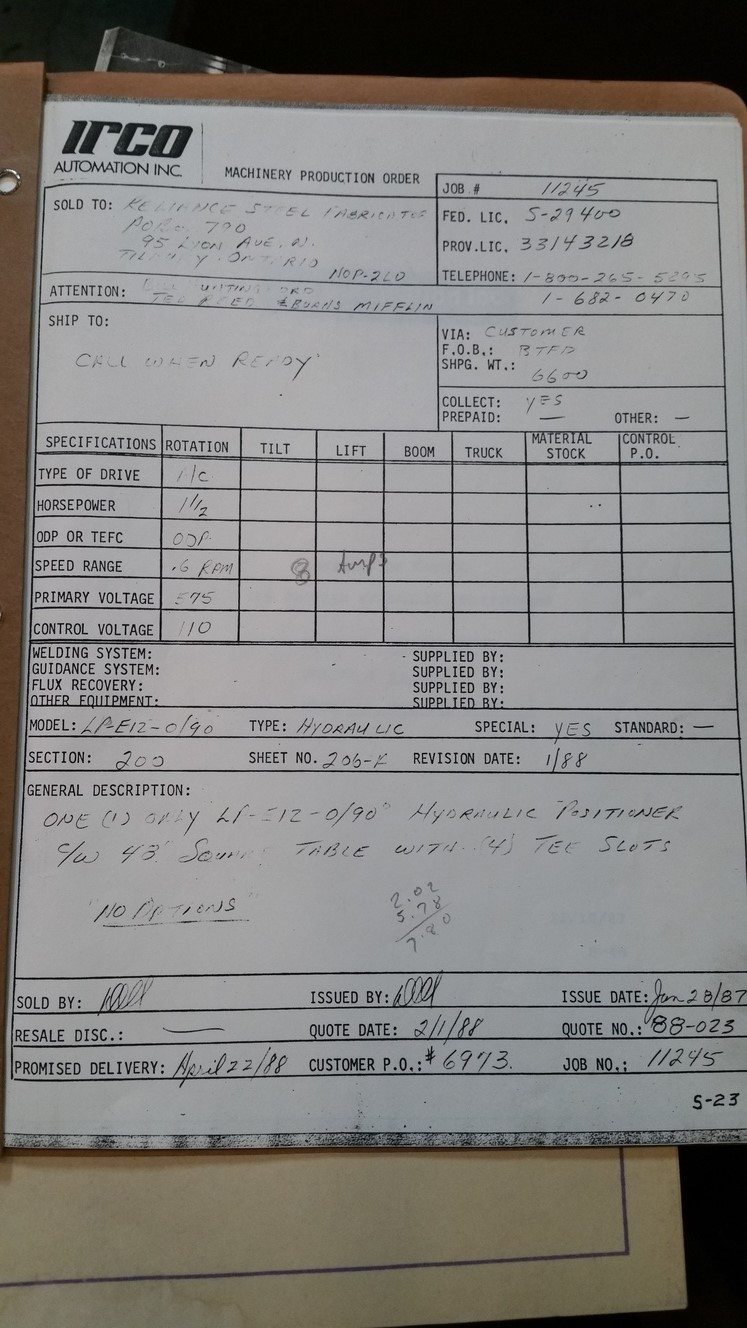 IRCO
AUTOMATION INC.
MACHINERY PRODUCTION ORDER
JOB # 11245
SOLD TO: RELIANCE STEEL FABRICATOR
FED. LIC. S-29400
790
PROV.LIC. 33143218
95 LYON AVE. N.
TILBURY ONTARIO
NOP-2L0
TELEPHONE: 1-800-265-5295
ATTENTION: BILL HUNTINGFORD
1-682-0470
TED REED & BURNS MIFFLIN
SHIP TO:
CALL WHEN READY
VIA: CUSTOMER
F.O.B.:
SHPG. WT.:
6600
COLLECT: YES
PREPAID: — OTHER: —
SPECIFICATIONS ROTATION TILT LIFT BOOM TRUCK MATERIAL STOCK CONTROL P.O.
TYPE OF DRIVE A/C
HORSEPOWER 1 1/2
ODP OR TEFC ODP
SPEED RANGE .6 RPM 8 Amps
PRIMARY VOLTAGE 575
CONTROL VOLTAGE 110
WELDING SYSTEM: SUPPLIED BY:
GUIDANCE SYSTEM: SUPPLIED BY:
FLUX RECOVERY: SUPPLIED BY:
OTHER EQUIPMENT: SUPPLIED BY:
MODEL: LP-E12-0/90 TYPE: HYDRAULIC SPECIAL: YES STANDARD: —
SECTION: 200 SHEET NO. 206-F REVISION DATE: 1/88
GENERAL DESCRIPTION:
ONE (1) ONLY LP-E12-0/90° HYDRAULIC POSITIONER
C/W 48" SQUARE TABLE WITH (4) TEE SLOTS
"NO OPTIONS"
2.02
5.78
7.80
SOLD BY: ISSUED BY: ISSUE DATE: Jan 28/87
RESALE DISC.: — QUOTE DATE: 2/1/88 QUOTE NO.: 88-023
PROMISED DELIVERY: April 22/88 CUSTOMER P.O.: # 6973. JOB NO.: 11245
S-23